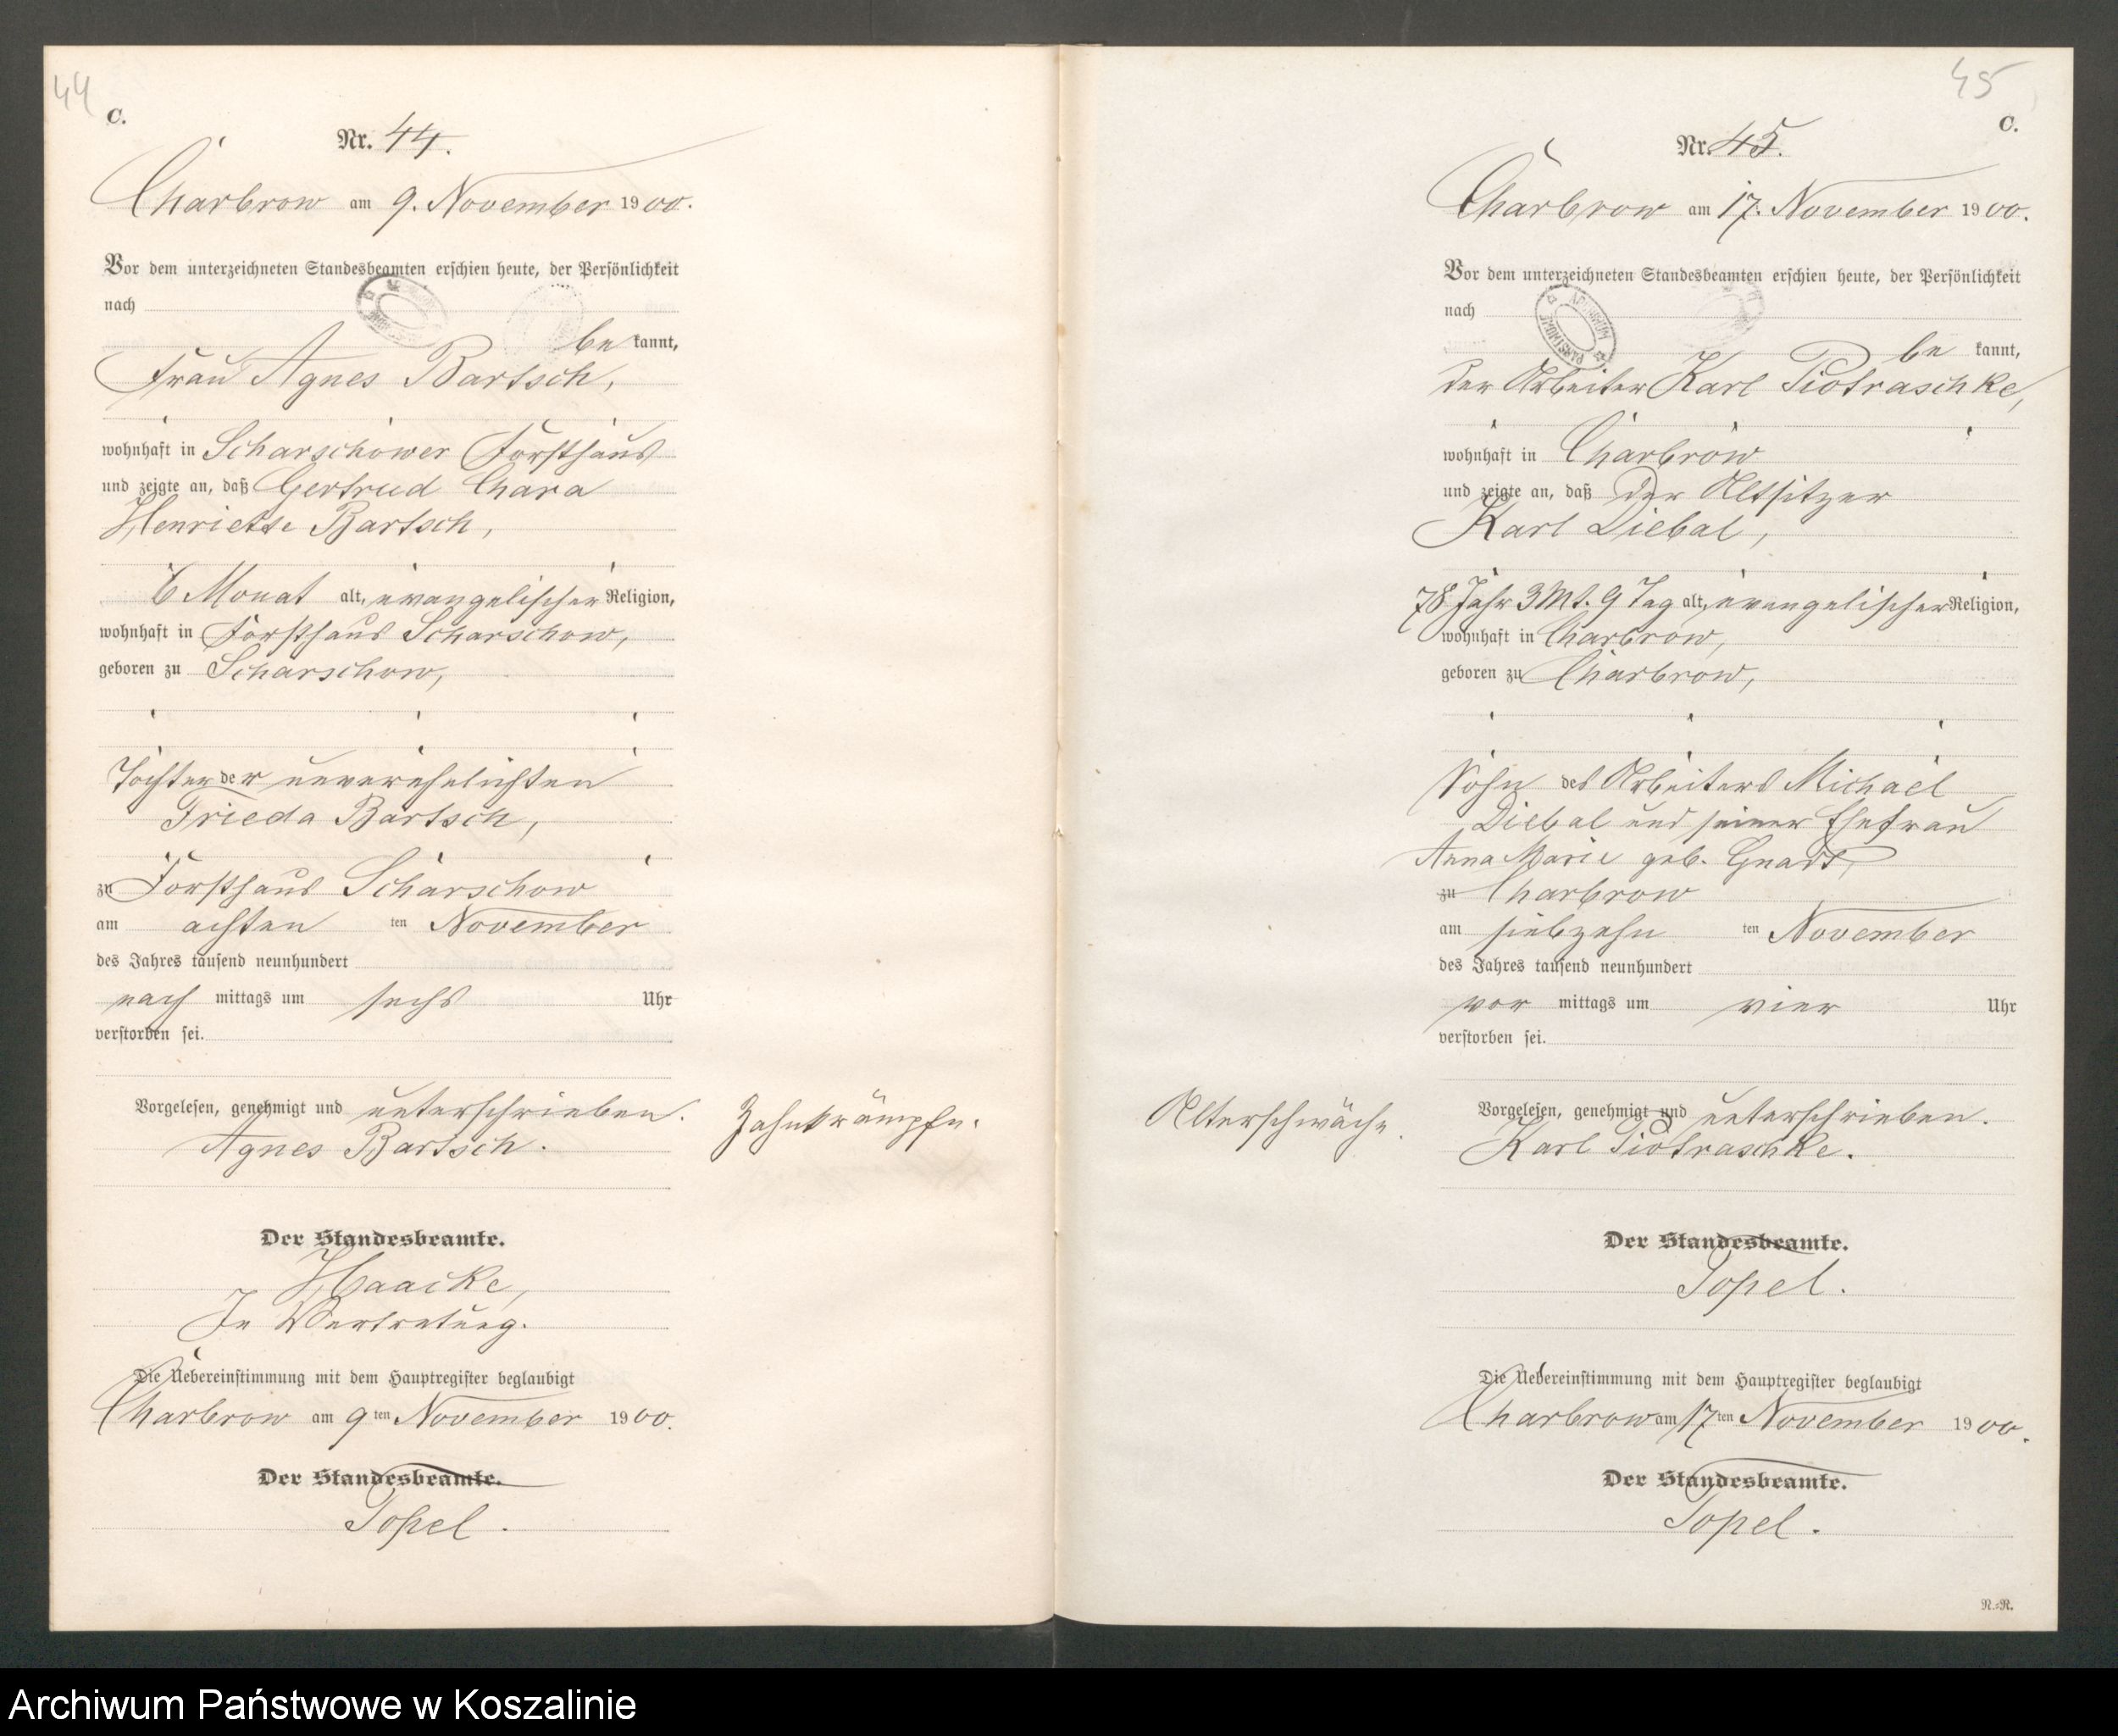 44
C.
Nr. 44.
Charbrow am 9. November 1900.
Vor dem unterzeichneten Standesbeamten erschien heute, der Persönlichkeit
nach
be kannt,
Frau Agnes Bartsch,
wohnhaft in Scharschower Forsthaus
und zeigte an, daß Gertrud Chara
Henriette Bartsch,
6 Monat alt, evangelischer Religion,
wohnhaft in Forsthaus Scharschow,
geboren zu Scharschow,
Tochter der unverehelichten
Frieda Bartsch,
zu Forsthaus Scharschow
am achten ten November
des Jahres tausend neunhundert
nach mittags um sechs Uhr
verstorben sei.
Vorgelesen, genehmigt und unterschrieben.
Agnes Bartsch.
Zahnkrämpfe.
Der Standesbeamte.
Haacke,
In Vertretung.
Die Uebereinstimmung mit dem Hauptregister beglaubigt
Charbrow am 9ten November 1900.
Der Standesbeamte.
Topel.
45
C.
Nr. 45.
Charbrow am 17. November 1900.
Vor dem unterzeichneten Standesbeamten erschien heute, der Persönlichkeit
nach
be kannt,
der Arbeiter Karl Piotraschke,
wohnhaft in Charbrow
und zeigte an, daß der Altsitzer
Karl Diebal,
78 Jahr 3 Mt. 9 Tag alt, evangelischer Religion,
wohnhaft in Charbrow,
geboren zu Charbrow,
Sohn des Arbeiters Michael
Diebal und seiner Ehefrau
Anna Marie geb. Gnadt,
zu Charbrow
am siebzehn ten November
des Jahres tausend neunhundert
vor mittags um vier Uhr
verstorben sei.
Alterschwäche.
Vorgelesen, genehmigt und unterschrieben.
Karl Piotraschke.
Der Standesbeamte.
Topel.
Die Uebereinstimmung mit dem Hauptregister beglaubigt
Charbrow am 17ten November 1900.
Der Standesbeamte.
Topel.
N.-N.
Archiwum Państwowe w Koszalinie